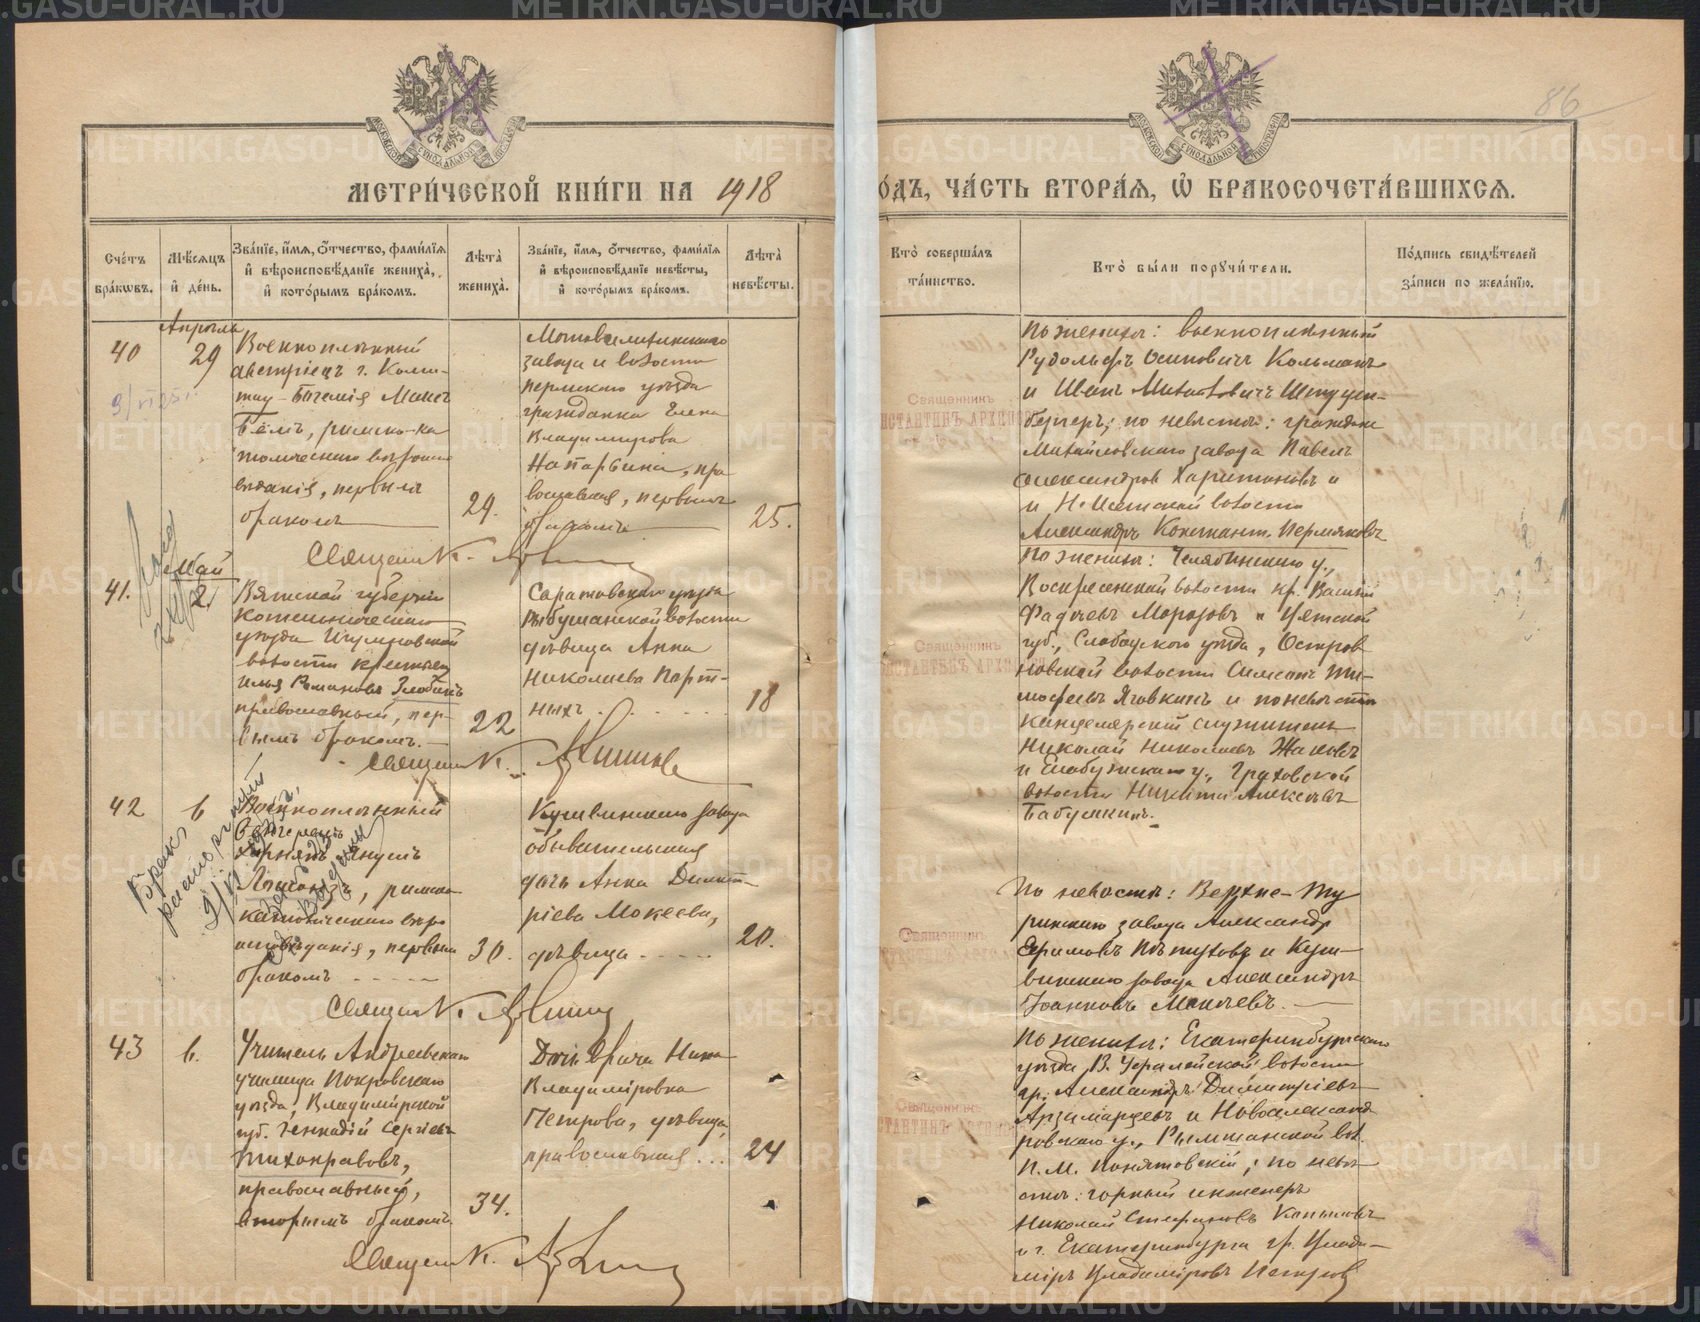 86
МЕТРИЧЕСКОЙ КНИГИ НА 1918
ОДЪ, ЧАСТЬ ВТОРАЯ, Ѡ БРАКОСОЧЕТАВШИХСЯ.
Счетъ браковъ.
Мѣсяцъ и день.
Званіе, имя, отчество, фамилія и вѣроисповѣданіе жениха, и которымъ бракомъ.
Лѣта жениха.
Званіе, имя, отчество, фамилія и вѣроисповѣданіе невѣсты, и которымъ бракомъ.
Лѣта невѣсты.
Кто совершалъ таинство.
Кто были поручители.
Подпись свидѣтелей записи по желанію.
40
Апрѣль
29
Военноплѣнный
австріецъ г. Комо-
тау - Богемія Максъ
Бёмъ, римско-ка
толическаго вѣроис
вѣданія, первымъ
бракомъ
29.
Мотовилихинскаго
завода и волости
пермскаго уѣзда
гражданка Елена
Владимирова
Напарьина, пра
вославная, первымъ
бракомъ
25.
Священник.
Священникъ
По женихѣ: военноплѣнный
Рудольфъ Осиповичъ Кольманъ
и Иванъ
бергеръ; по невѣстѣ: граждане
Михайловскаго завода Павелъ
Александров Харитоновъ и
и Н-Исетской волости
Александръ Констант. Пермяковъ
41.
Май
2.
Вятской губерніи
Котельническаго
уѣзда
волости крестьян
Илья Романовъ Злобинъ
православный, пер-
вымъ бракомъ.
22
Саратовскаго уѣзда
Рыбушанской волости
дѣвица Анна
Николаева Порт-
ныхъ
18
Священник.
Священникъ
По женихѣ: Челябинскаго у.,
Воскресенской волости кр. Василій
Фадѣевъ Морозовъ и Вятской
губ., Слободскаго уѣзда, Остров
новской волости Симеонъ Ти-
мофеевъ Яговкинъ и по невѣстѣ
канцелярскій служитель
Николай Николаевъ Жаковъ
и Елабужскаго у., Граховской
волости Никита Алексѣевъ
Бабушкинъ.
42
6
Военноплѣнный
Венгерецъ
римско
католическаго вѣро
исповѣданія, первымъ
бракомъ
30.
Кушвинскаго завода
обывательская
дочь Анна Димит-
ріева Мокеева,
дѣвица
20.
Брак
расторгнут
Священник.
Священникъ
По невѣстѣ: Верхне-Ту
ринскаго завода Александр
Ефимовъ Пѣтуховъ и Куш-
винскаго завода Александръ
Іоанновъ Мокѣевъ.
43
6.
Учитель Андреевскаго
училища Покровскаго
уѣзда, Владимірской
губ. Геннадій Сергѣевъ
Тихонравовъ,
православный,
вторымъ бракомъ.
34.
Дочь врача Нина
Владиміровна
Петрова, дѣвица,
православная
24
Священник.
Священникъ
По женихѣ: Екатеринбургскаго
уѣзда, В. Уфалейской волости
гр. Александръ Димитріевъ
и Новоалександ
ровскаго у., Рымшанской вол.
П. М. Понятовскій; по невѣ
стѣ: горный инженеръ
Николай Стефановъ Копыловъ
и г. Екатеринбурга гр. Влади-
міръ Владиміровъ Петровъ
METRIKI.GASO-URAL.RU